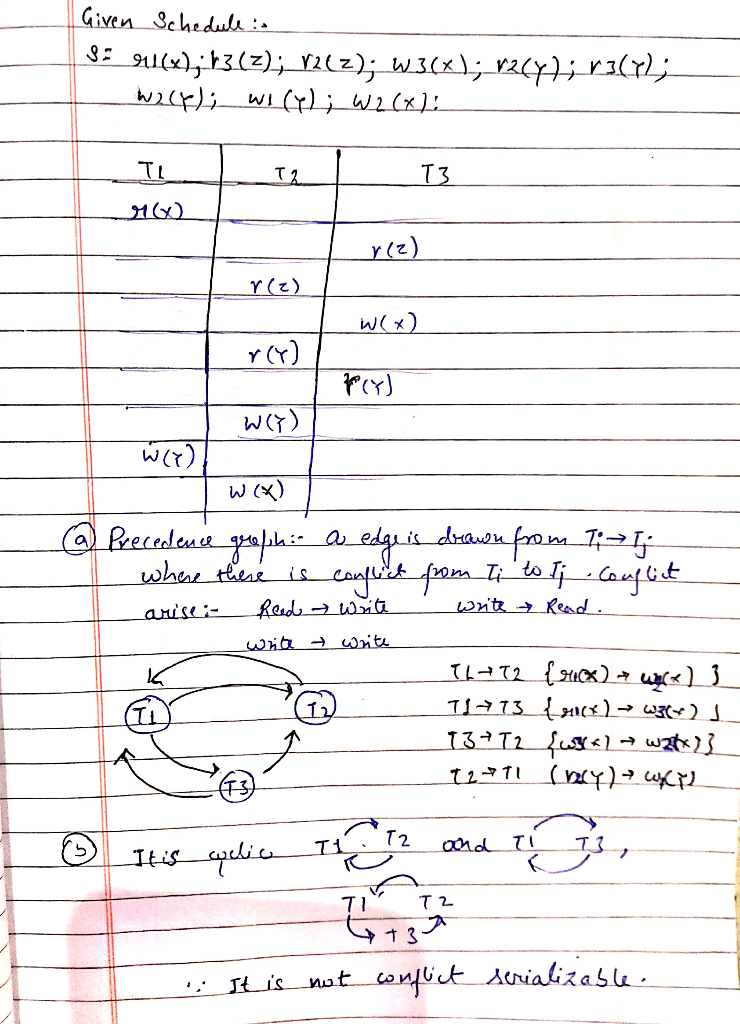 Given Schedule :-
S= r1(x); r3(z); r2(z); w3(x); r2(y); r3(y);
w2(y); w1(y); w2(x):
T1 T2 T3
r(x)
r(z)
r(z)
w(x)
r(Y)
r(Y)
W(Y)
W(Y)
W(X)
(a) Precedence graph:- a edge is drawn from Ti→Tj
where there is conflict from Ti to Tj . Conflict
arise :- Read → Write write → Read.
write → write
T1→T2 {r1(x) → w2(x) }
T1→T3 {r1(x) → w3(x) }
T3→T2 {w3(x) → w2(x)}
T2→T1 (r2(y) → w1(y)
T1 T2
T3
(b) It is cyclic T1 T2 and T1 T3,
T1 T2
T3
∴ It is not conflict serializable.